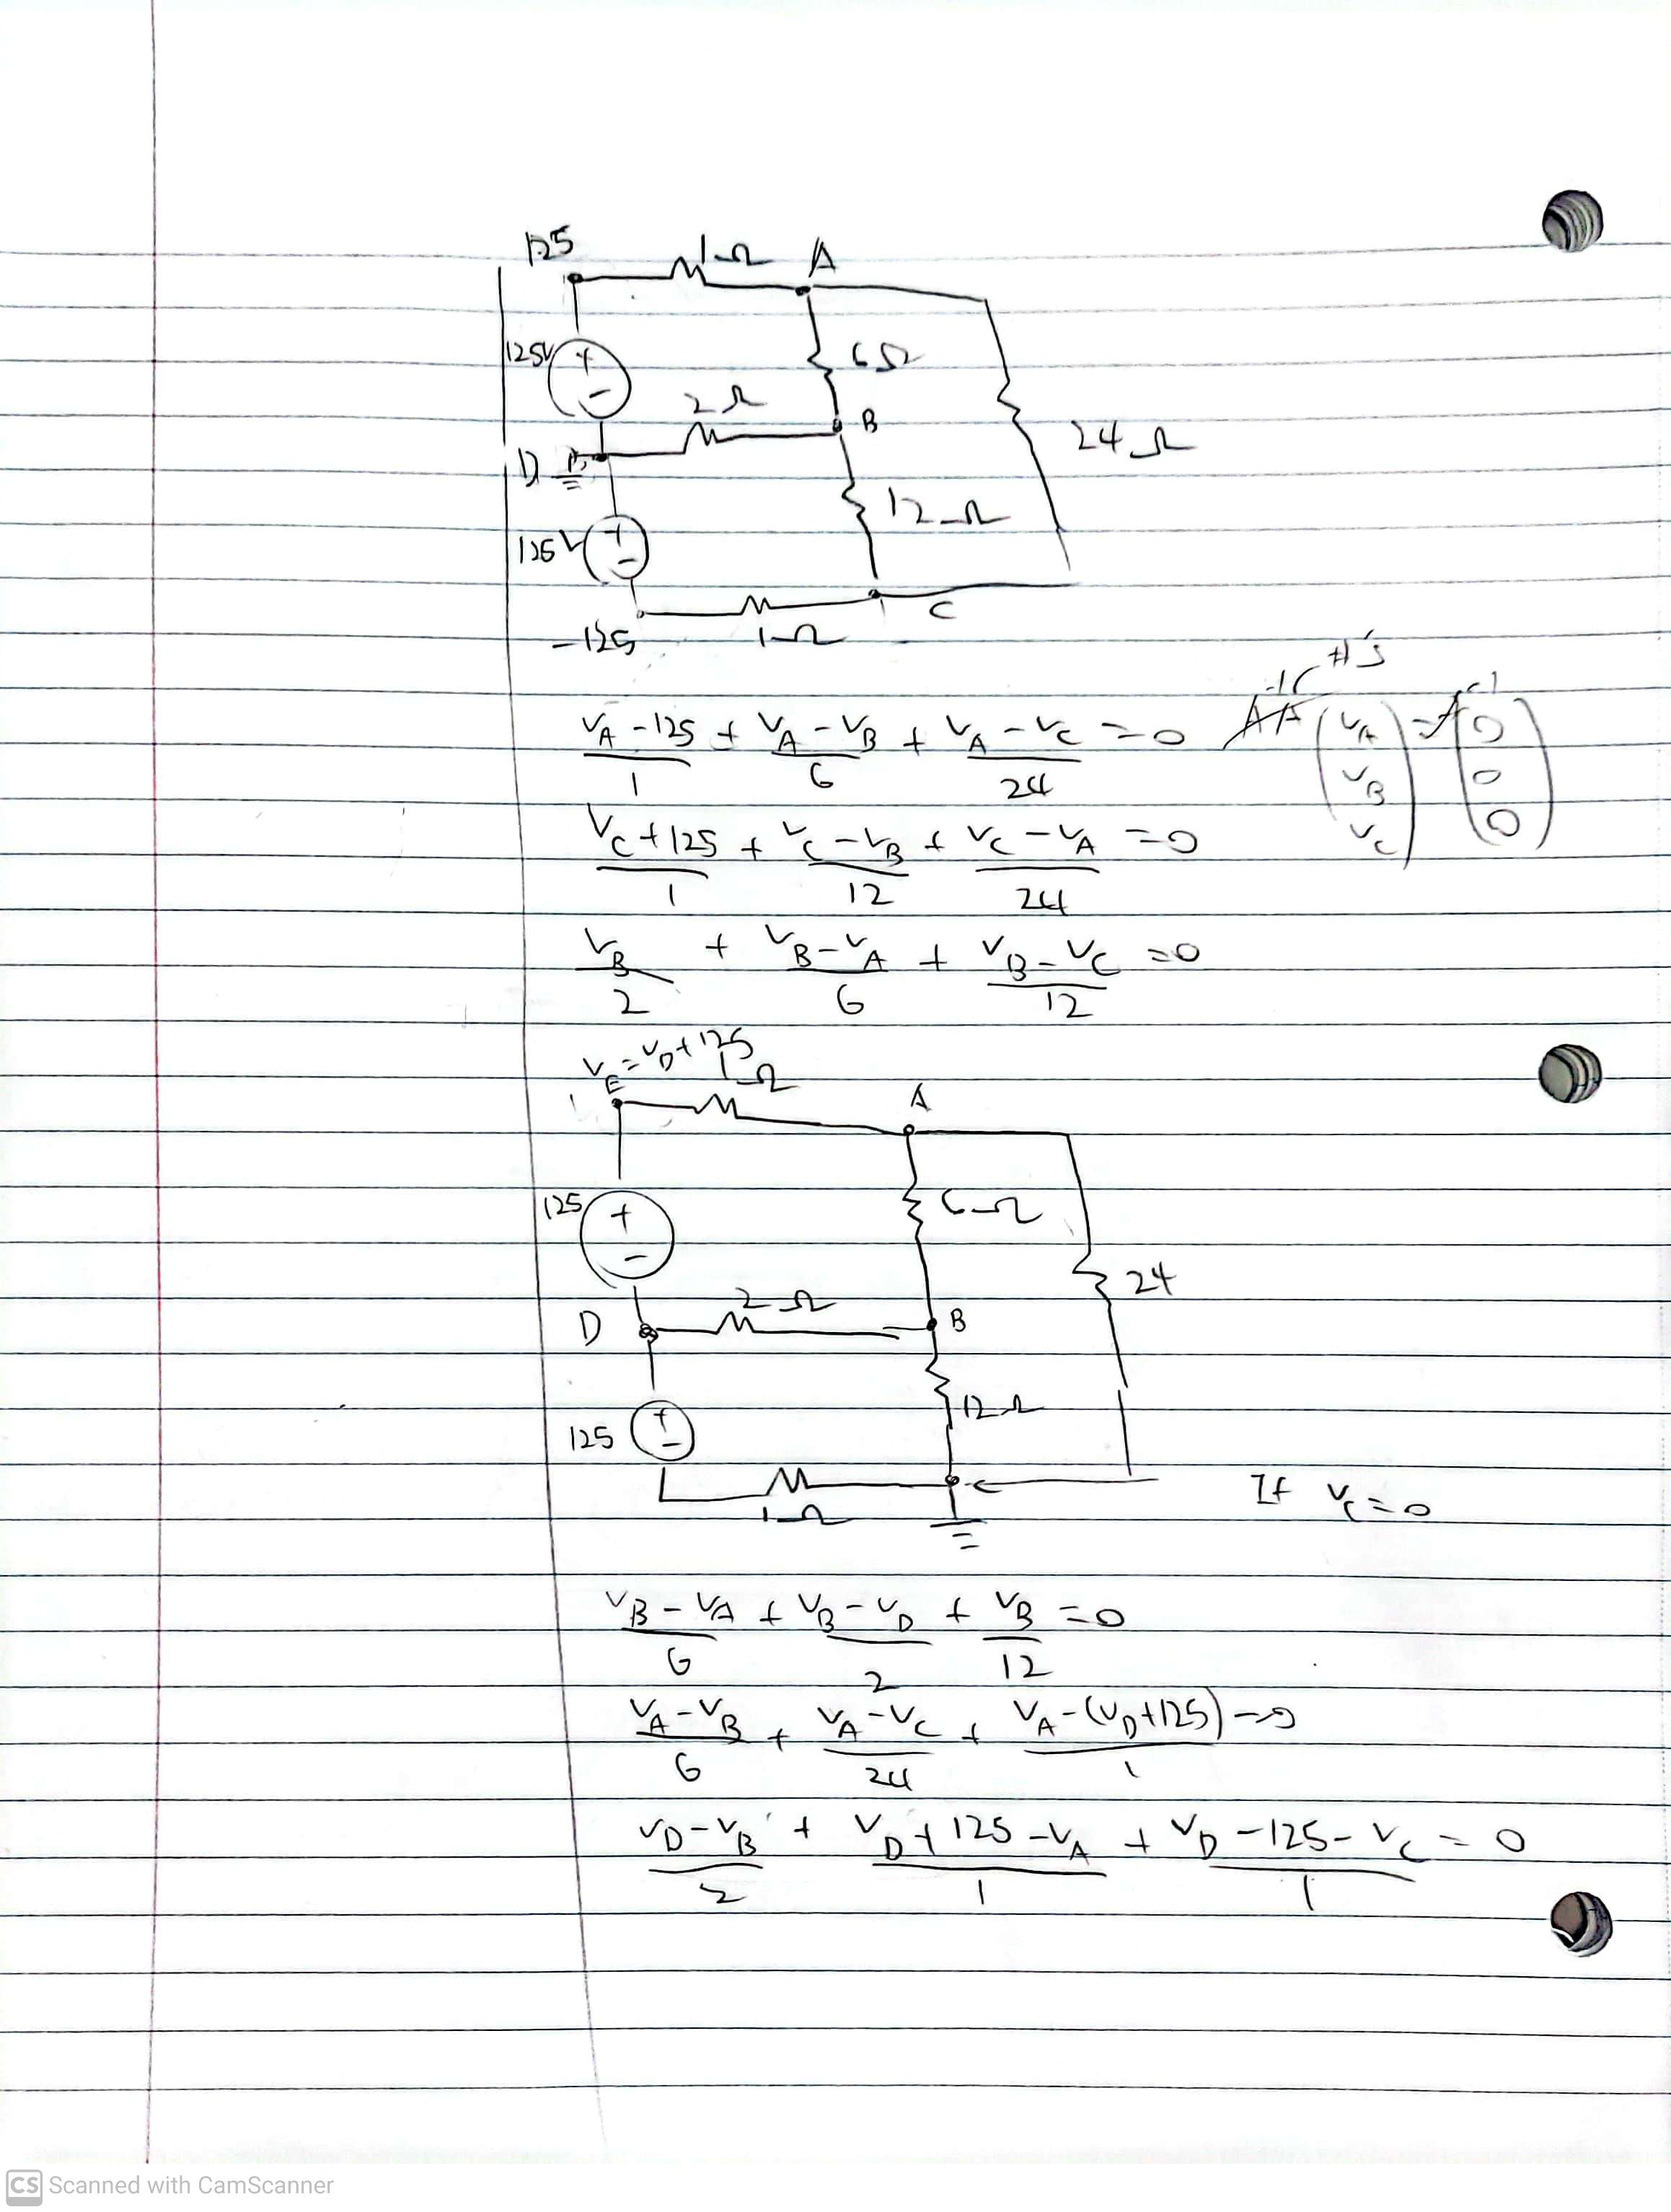 125
1Ω A
125V + -
6Ω
2Ω B
24Ω
D
12Ω
125V + -
C
-125 1Ω
#'s
(V_A - 125)/1 + (V_A - V_B)/6 + (V_A - V_C)/24 = 0
(V_A V_B V_C) = (0 0 0)
(V_C + 125)/1 + (V_C - V_B)/12 + (V_C - V_A)/24 = 0
V_B/2 + (V_B - V_A)/6 + (V_B - V_C)/12 = 0
V_E = V_D + 125
1Ω A
125 + -
6Ω
24
2Ω
D B
12Ω
125 + -
1Ω
If V_C = 0
(V_B - V_A)/6 + (V_B - V_D)/2 + V_B/12 = 0
(V_A - V_B)/6 + (V_A - V_C)/24 + (V_A - (V_D + 125))/1 = 0
(V_D - V_B)/2 + (V_D + 125 - V_A)/1 + (V_D - 125 - V_C)/1 = 0
CS Scanned with CamScanner